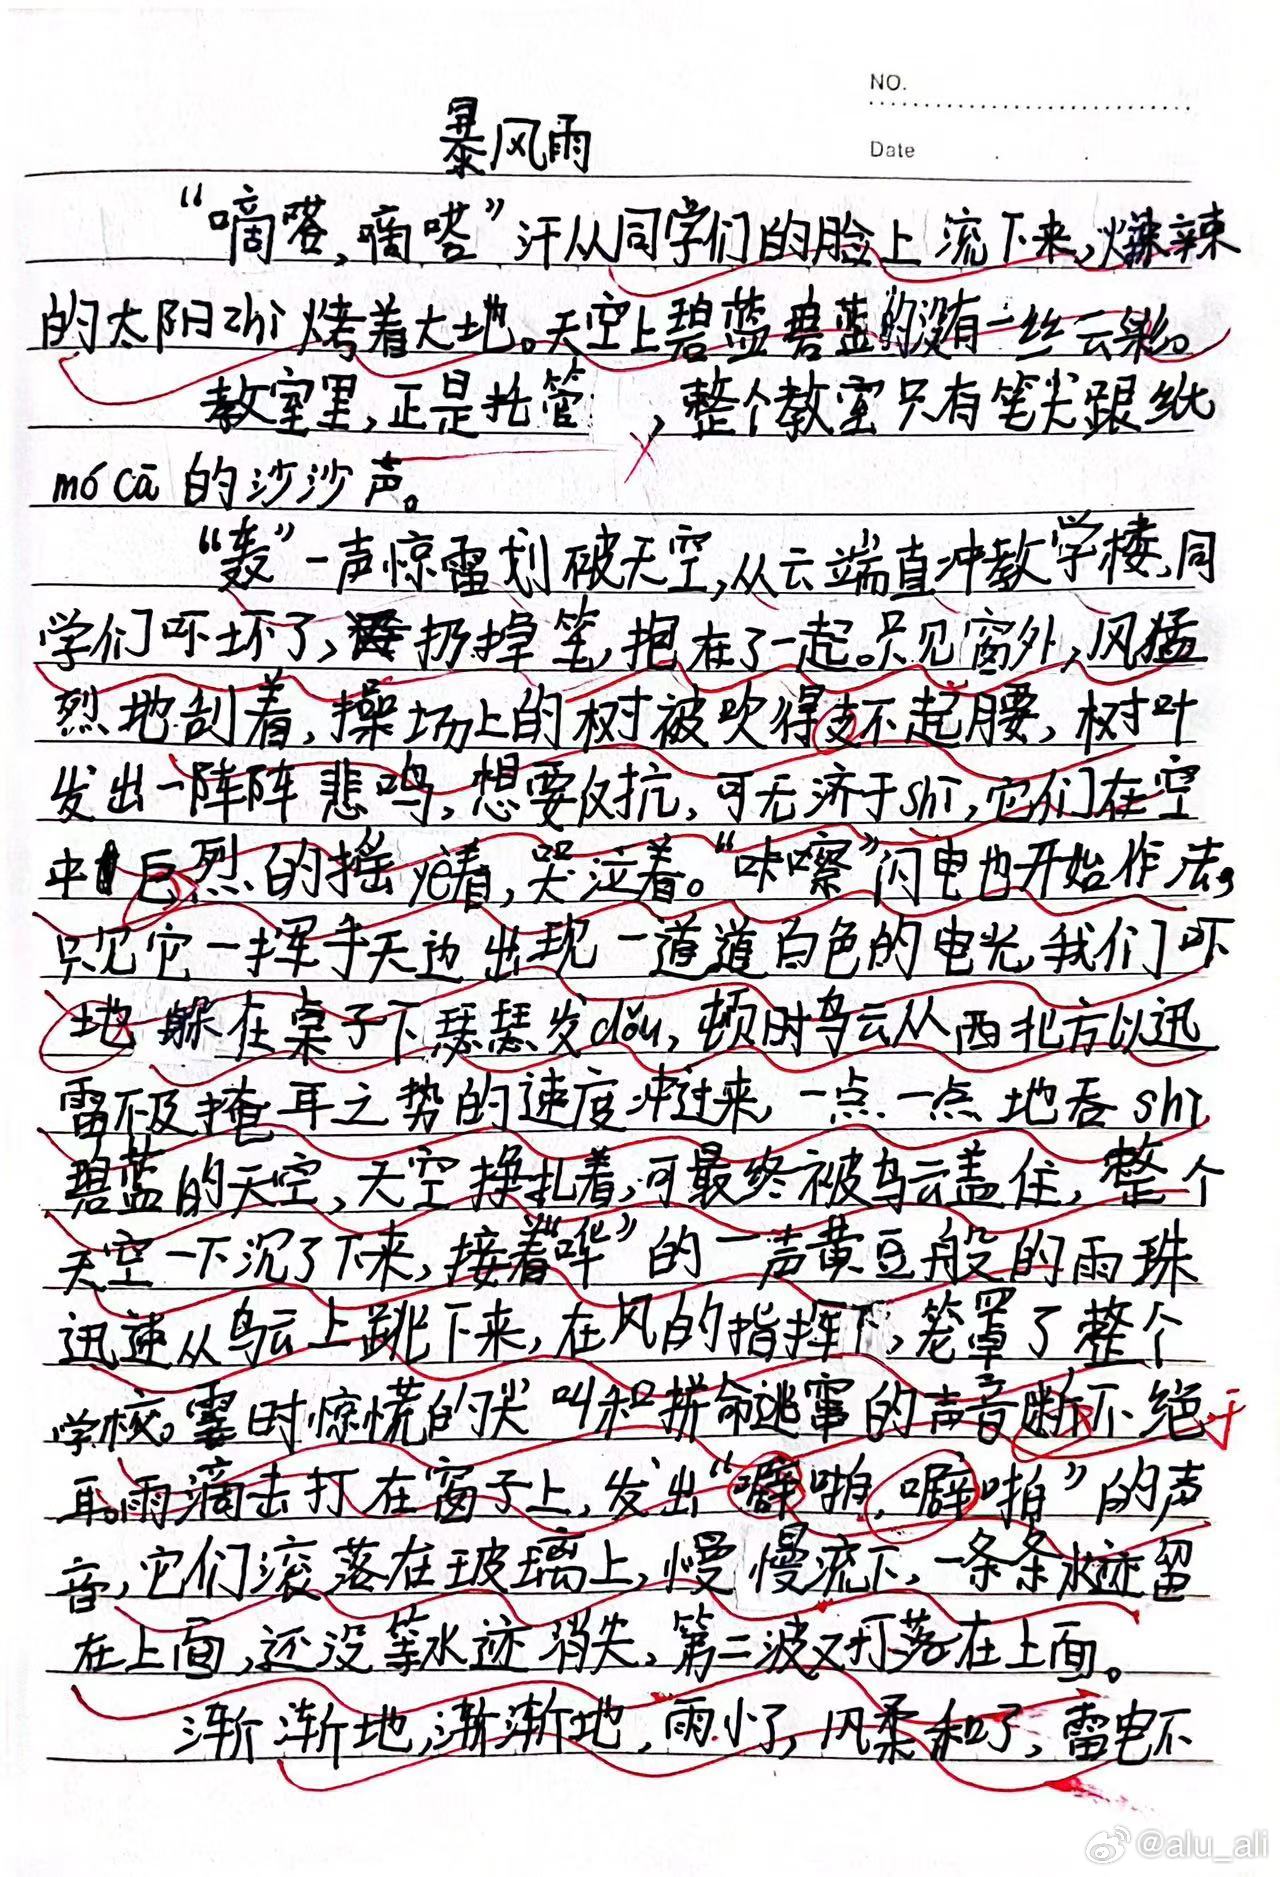 NO.
Date
暴风雨
“嘀嗒,嘀嗒”汗从同学们的脸上流下来,爆辣
的太阳zhì烤着大地。天空上碧蓝碧蓝的没有一丝云彩。
教室里,正是托管,整个教室只有笔尖跟纸
mó cā的沙沙声。
“轰”一声惊雷划破天空,从云端直冲教学楼,同
学们吓坏了,扔掉笔,抱在了一起。只见窗外,风猛
烈地刮着,操场上的树被吹得支不起腰,树叶
发出一阵阵悲鸣,想要反抗,可无济于shì,它们在空
中巨烈的摇yè着,哭泣着。“咔嚓”闪电也开始作法,
只见它一挥手天边出现一道道白色的电光,我们吓
地躲在桌子下瑟瑟发dǒu,顿时乌云从西北方以迅
雷不及掩耳之势的速度冲过来,一点一点地吞shì
碧蓝的天空,天空挣扎着,可最终被乌云盖住,整个
天空一下沉了下来,接着“哗”的一声黄豆般的雨珠
迅速从乌云上跳下来,在风的指挥下,笼罩了整个
学校。霎时惊慌的尖叫和拼命逃窜的声音断不绝
耳。雨滴击打在窗子上,发出“噼啪,噼啪”的声
音,它们滚落在玻璃上,慢慢流下,一条条水迹留
在上面,还没等水迹消失,第二波又打落在上面。
渐渐地,渐渐地,雨小了,风柔和了,雷电不
@alu_ali